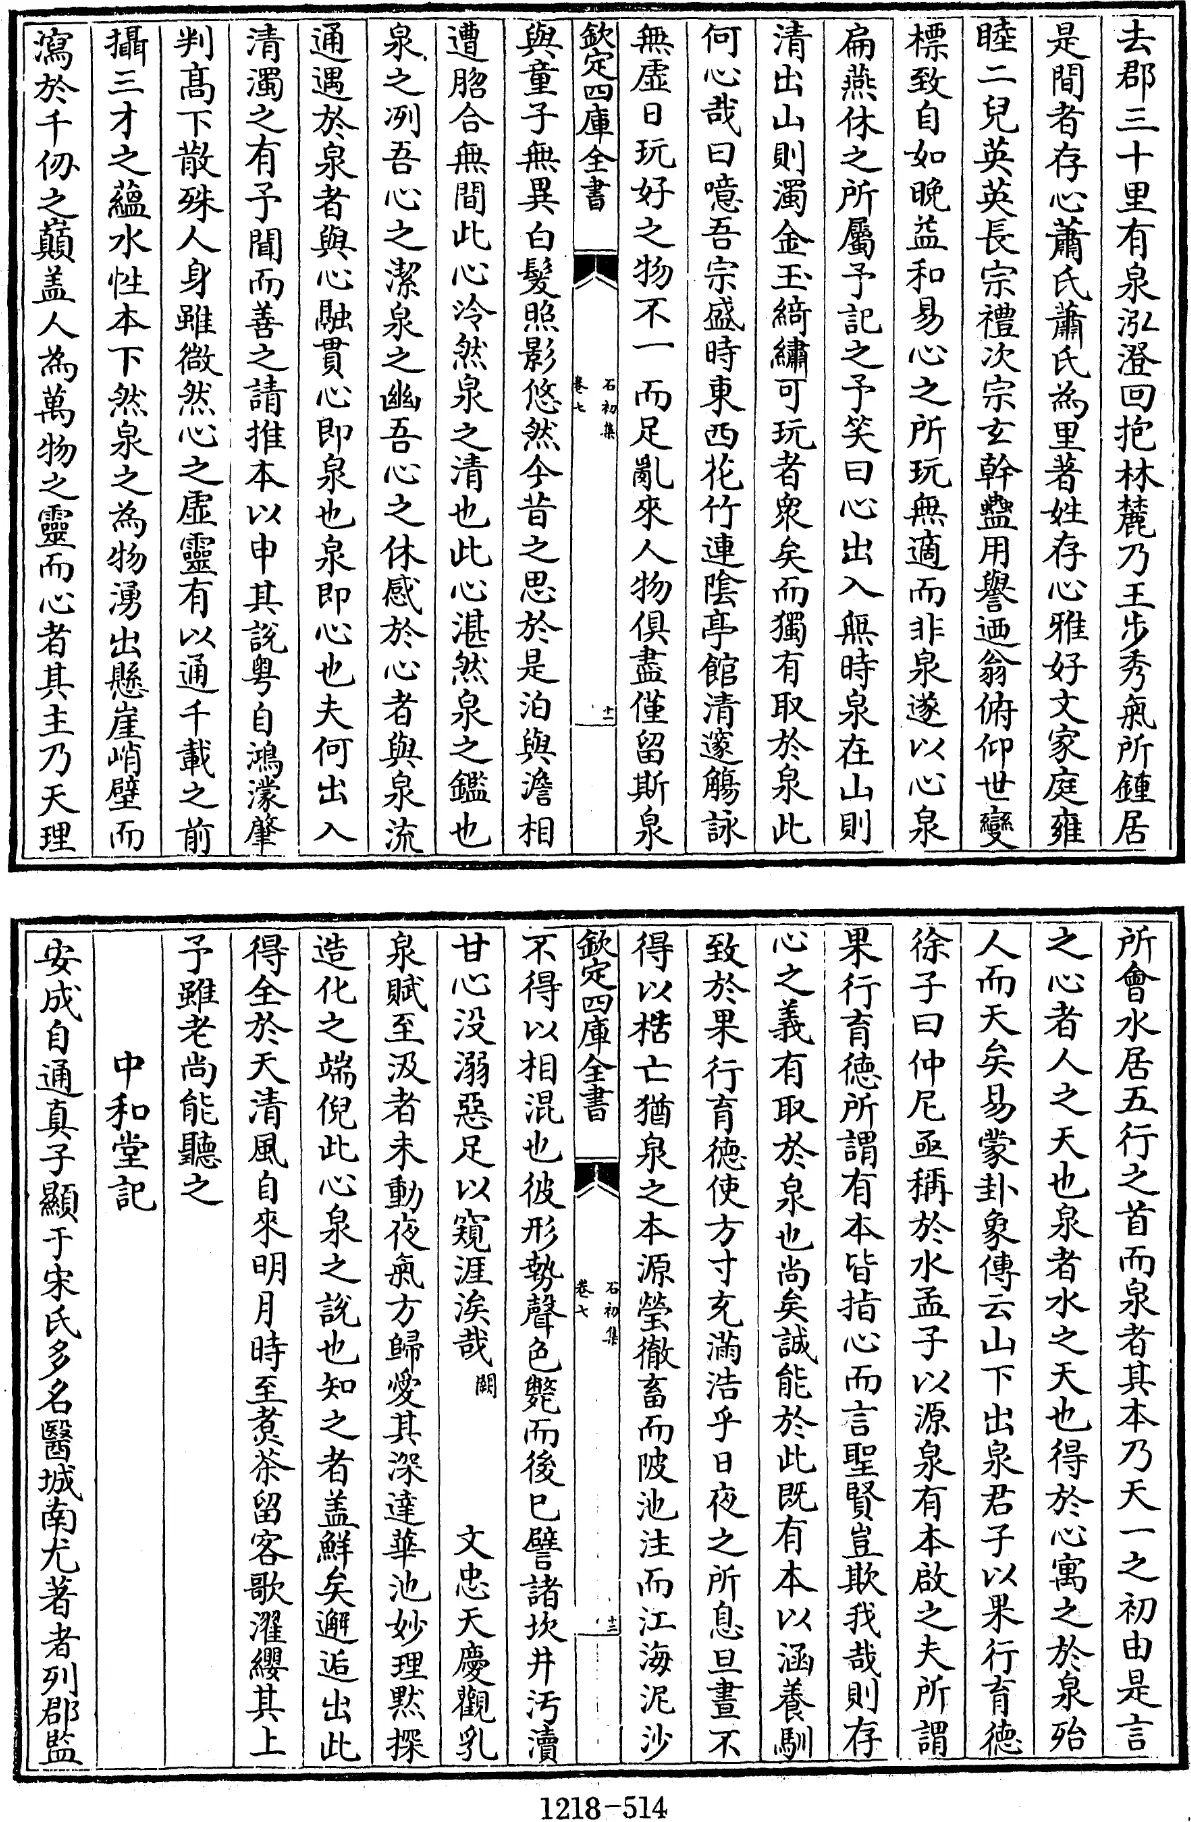 去郡三十里有泉泓澄回抱林麓乃王步秀氣所鍾居
是間者存心蕭氏蕭氏為里著姓存心雅好文家庭雍
睦二兒英英長宗禮次宗玄幹蠱用譽迺翁俯仰世變
標致自如晚益和易心之所玩無適而非泉遂以心泉
扁燕休之所屬予記之予笑曰心出入無時泉在山則
清出山則濁金玉綺繡可玩者衆矣而獨有取於泉此
何心哉曰噫吾宗盛時東西花竹連陰亭館清邃觴詠
無虛日玩好之物不一而足亂來人物俱盡僅留斯泉
欽定四庫全書
石初集
卷七
十二
與童子無異白髮照影悠然今昔之思於是泊與澹相
遭脗合無間此心泠然泉之清也此心湛然泉之鑑也
泉之冽吾心之潔泉之幽吾心之休感於心者與泉流
通遇於泉者與心融貫心即泉也泉即心也夫何出入
清濁之有予聞而善之請推本以申其說粤自鴻濛肇
判髙下散殊人身雖微然心之虛靈有以通千載之前
攝三才之蘊水性本下然泉之為物湧出懸崖峭壁而
瀉於千仭之巔盖人為萬物之靈而心者其主乃天理
所會水居五行之首而泉者其本乃天一之初由是言
之心者人之天也泉者水之天也得於心寓之於泉殆
人而天矣易蒙卦象傳云山下出泉君子以果行育德
徐子曰仲尼亟稱於水孟子以源泉有本啟之夫所謂
果行育德所謂有本皆指心而言聖賢豈欺我哉則存
心之義有取於泉也尚矣誠能於此既有本以涵養馴
致於果行育德使方寸充滿浩乎日夜之所息旦晝不
得以梏亡猶泉之本源瑩徹畜而陂池注而江海泥沙
欽定四庫全書
石初集
卷七
十三
不得以相混也彼形勢聲色斃而後已譬諸坎井汚瀆
甘心没溺惡足以窺涯涘哉闕 文忠天慶觀乳
泉賦至汲者未動夜氣方歸愛其深達華池妙理黙探
造化之端倪此心泉之說也知之者盖鮮矣邂逅出此
得全於天清風自來明月時至煑茶留客歌濯纓其上
予雖老尚能聽之
中和堂記
安成自通真子顯于宋氏多名醫城南尤著者列郡監
1218-514